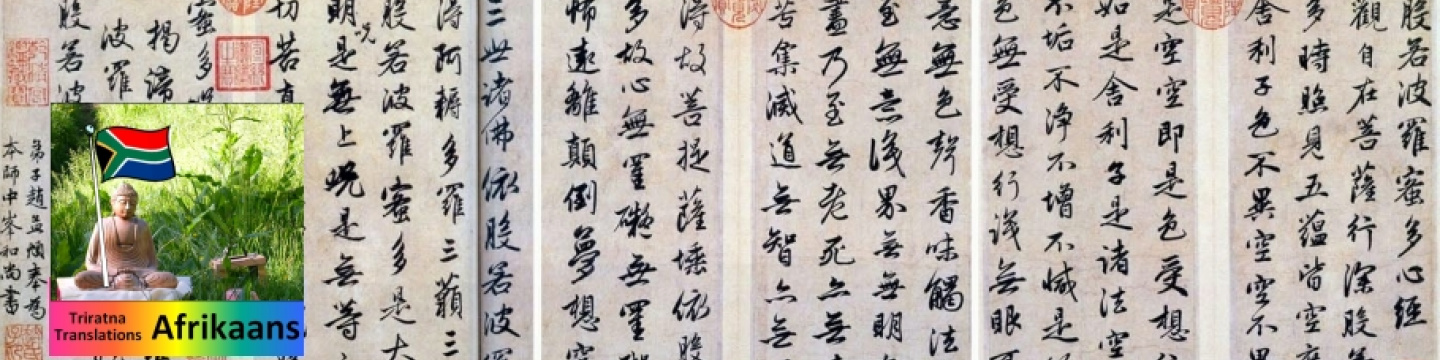 般若波羅蜜多心經
觀自在菩薩行深般
多時照見五蘊皆空
舍利子色不異空空不
是空空即是色受想
如是舍利子是諸法空
不垢不淨不增不減是
色無受想行識無眼
意無色聲香味觸法
至無意識界無無明
盡乃至無老死亦無
苦集滅道無智亦無
得故菩提薩埵依般
多故心無罣礙無罣
怖遠離顛倒夢想
三世諸佛依般若波
得阿耨多羅三藐三
般若波羅蜜多是大
明呪是無上呪是無等
切苦真
蜜多
揭諦
波羅
般若波
弟子趙孟頫奉為
本師中峯和尚書
Triratna
Translations
Afrikaans